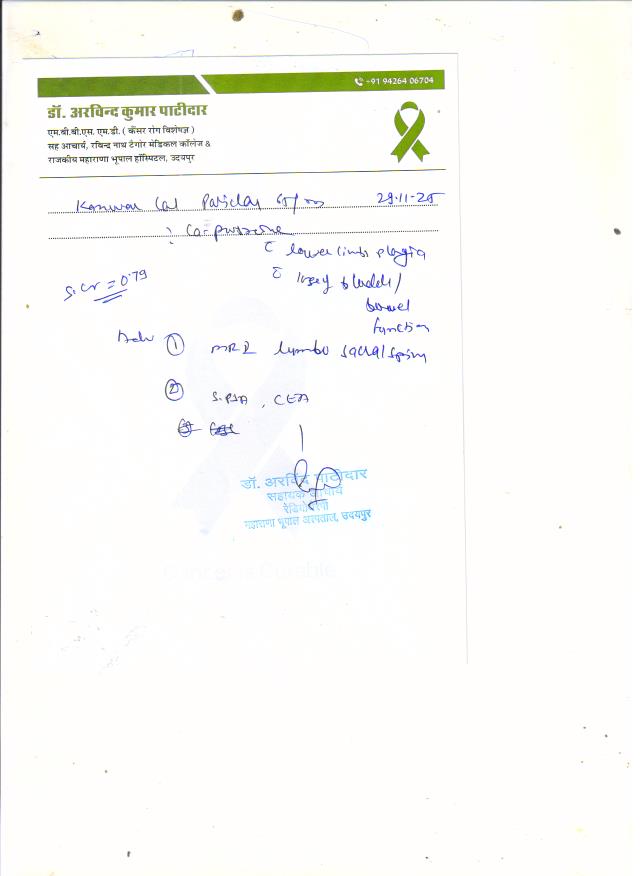 +91 94264 06704
डॉ. अरविन्द कुमार पाटीदार
एम.बी.बी.एस. एम.डी. ( कैंसर रोग विशेषज्ञ )
सह आचार्य, रविन्द्र नाथ टैगोर मेडिकल कॉलेज &
राजकीय महाराणा भूपाल हॉस्पिटल, उदयपुर
Lal 29-11-25
Ca-prostate
c̄ lower limb plegia
S.Cr = 0.79
c̄ bladder/
bowel
function
Adv ① MRI lumbo sacral spine
② S.PSA, CEA
डॉ. अरविंद पाटीदार
सहायक आचार्य
महाराणा भूपाल अस्पताल, उदयपुर
Cancer is Curable